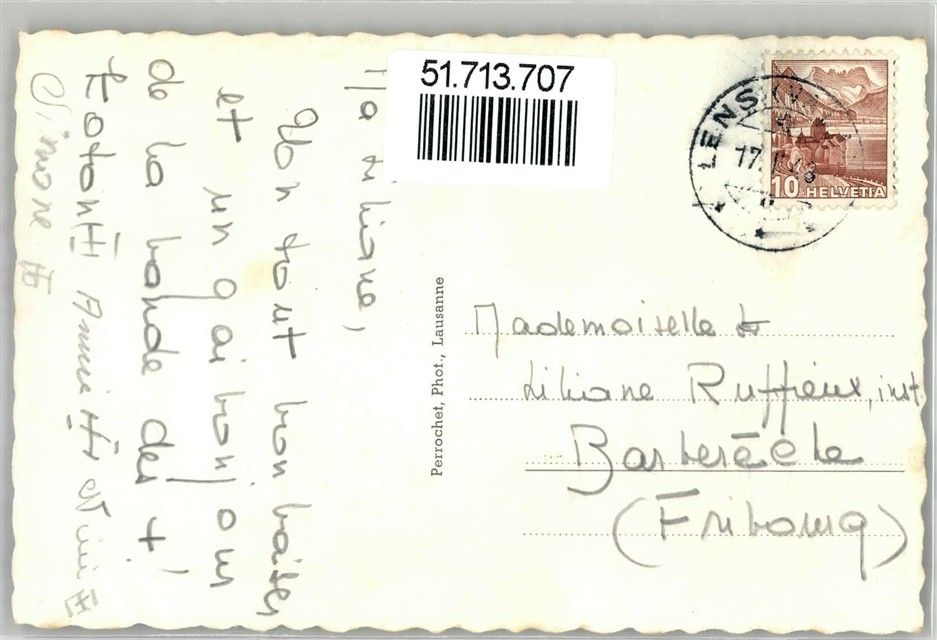 51.713.707
LENS
17.
10 HELVETIA
Liliane,
Mon tout bon baiser
et un gai bonjour
de la bande des t!
Toton III Annie
Simone
Perrochet, Phot., Lausanne
Mademoiselle
Liliane Ruffieux, inst
Barberêche
(Fribourg)